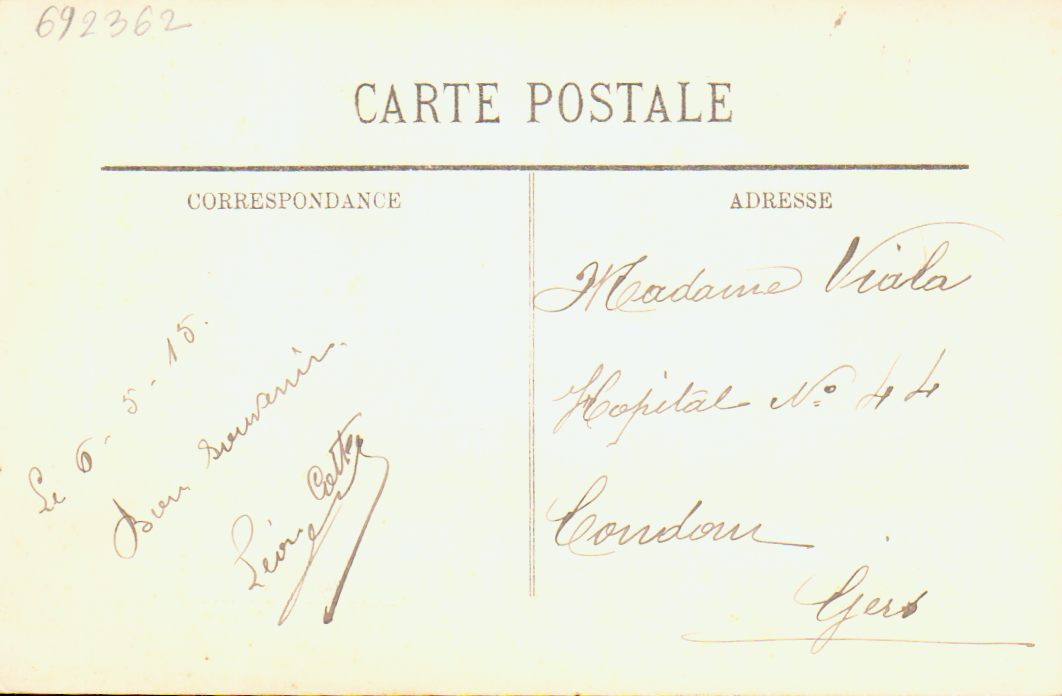 692362
CARTE POSTALE
CORRESPONDANCE
Le 6 - 5 - 15.
Bon souvenir.
Léon
ADRESSE
Madame Viala
Hopital N° 44
Condom
Gers